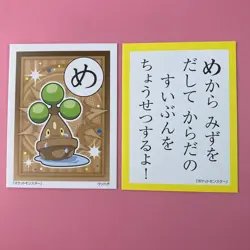 め
(ポケットモンスター)
めから みずを
だして からだの
すいぶんを
ちょうせつするよ!
(ポケットモンスター)